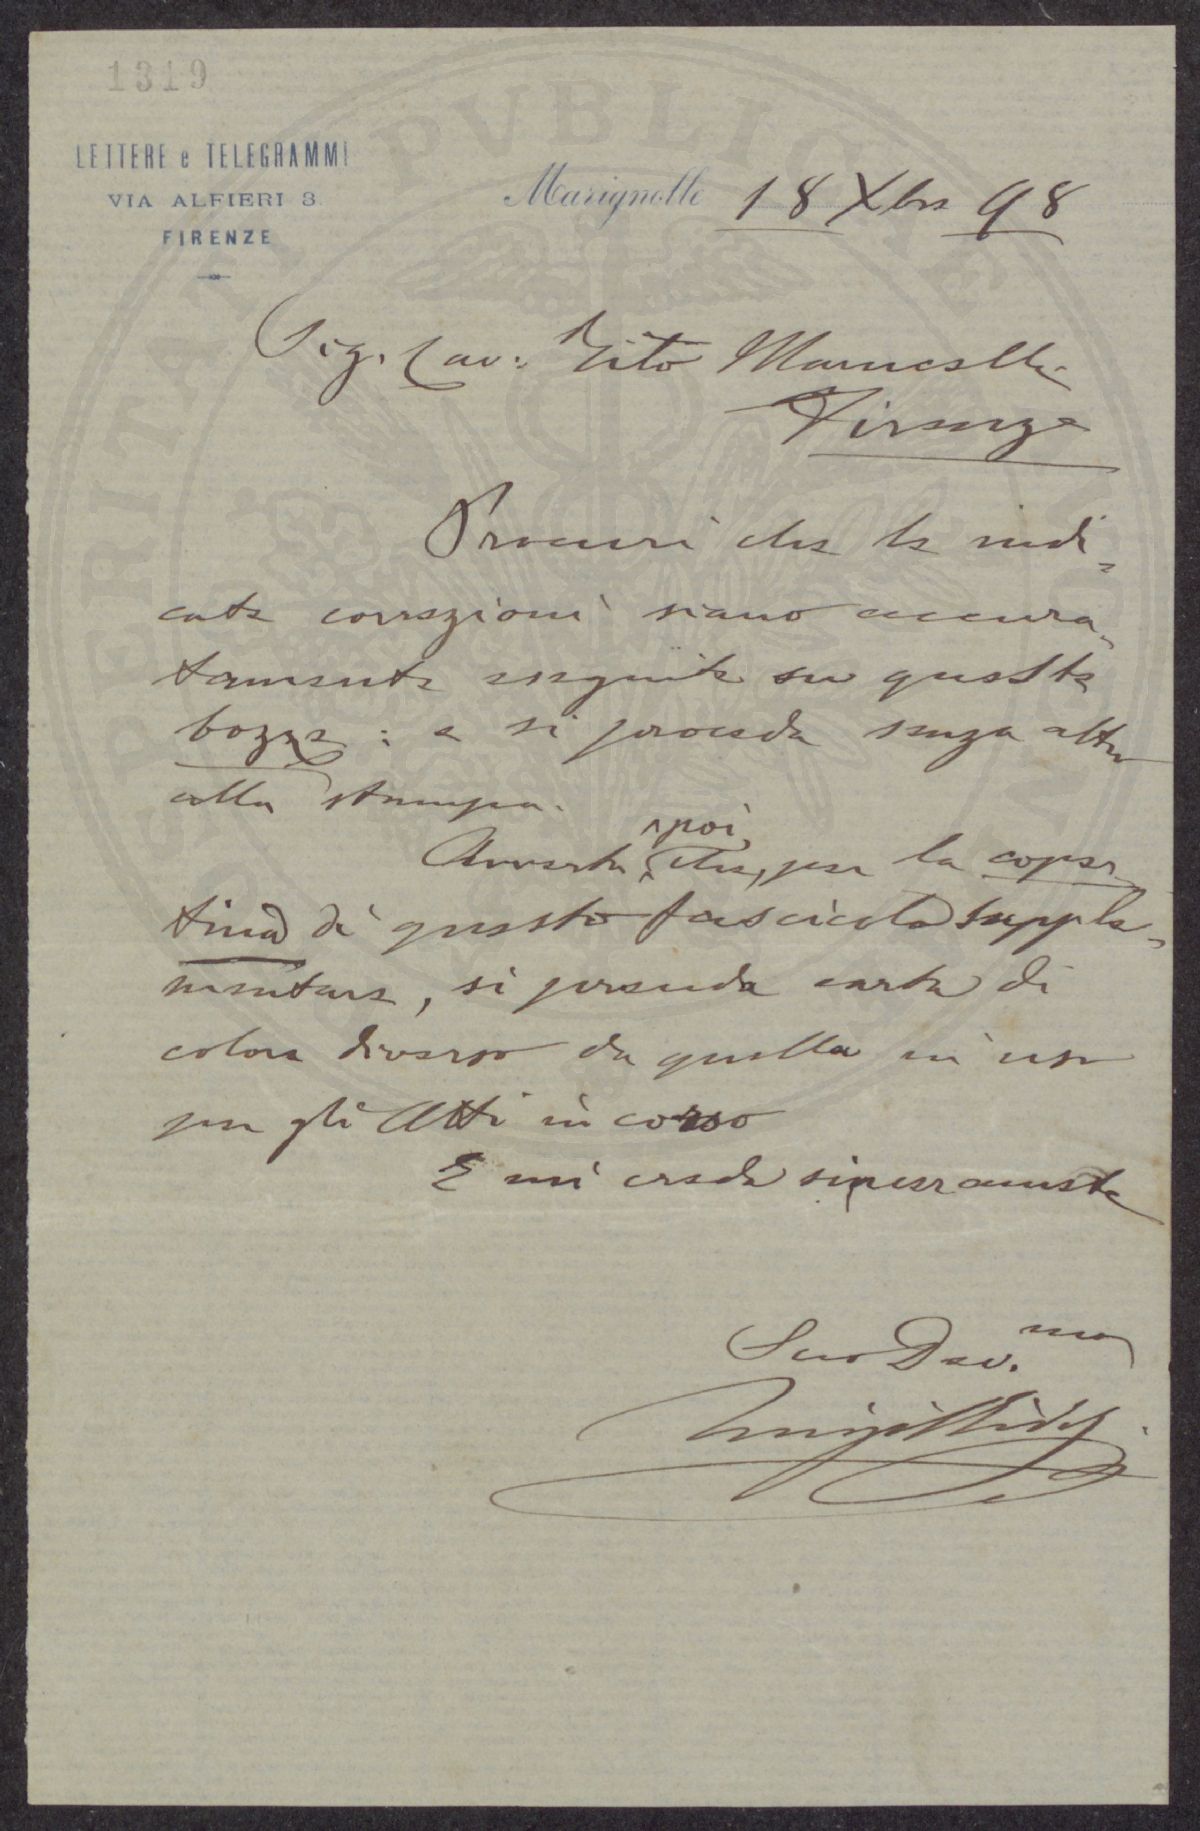 1319
LETTERE e TELEGRAMMI
VIA ALFIERI 3.
FIRENZE
Marignolle 18 Xbre 98
Sig. Cav: Vito Manuelli
Firenze
Procuri che le indi-
cate correzioni siano accura-
tamente eseguite su queste
bozze: e si proceda senza altro
alla stampa.
Avverta poi, che, per la coper-
tina di questo fascicolo supple-
mentare, si prenda carta di
colore diverso da quella in uso
per gli Atti in corso
E mi creda sinceramente
Suo Dev.mo
PVBLICAE